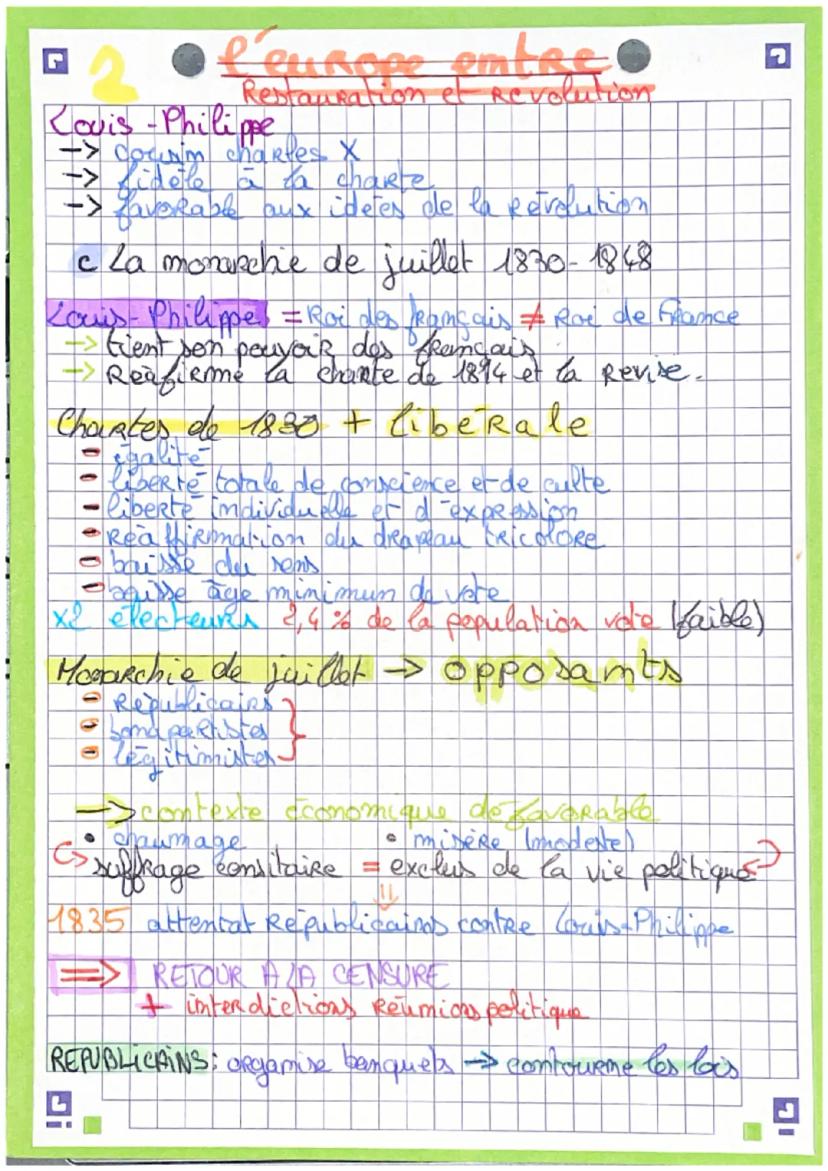 2 l'europe entre
Restauration et révolution
Louis-Philippe
-> cousin charles X
-> fidèle à la charte
-> favorable aux idées de la révolution
c La monarchie de juillet 1830-1848
Louis-Philippe = Roi des français ≠ Roi de France
-> tient son pouvoir des français
-> Réafirme la charte de 1814 et la révise.
Chartes de 1830 + libérale
- égalité
- liberté totale de conscience et de culte
- liberté individuelle et d'expression
- Réaffirmation du drapeau tricolore
- baisse du sens
- baisse âge minimum de vote
x2 électeurs 2,4% de la population vote (faible)
Monarchie de juillet -> opposants
- Républicains
- bonapartistes
- légitimistes
-> contexte économique défavorable
• chaumage • misère (modeste)
suffrage censitaire = exclus de la vie politique
1835 attentat Républicains contre Louis-Philippe
=> RETOUR A LA CENSURE
+ interdictions réunions politique
REPUBLICAINS: organise banquets -> contourne les lois